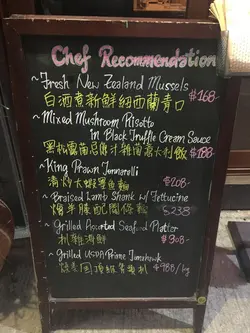 Chef Recommendation
~Fresh New Zealand Mussels
白酒煮新鮮紐西蘭青口 $168
~Mixed Mushroom Risotto
in Black Truffle Cream Sauce
黑松露菌忌廉汁雜菌意大利飯 $188
~King Prawn Tonnarelli
清炒大蝦墨魚麵 $208
~Braised Lamb Shank w/ Fettucine
燴羊膝配闊條麵 $238
~Grilled Assorted Seafood Platter
扒雜海鮮 $908
~Grilled USDA Prime Tomahawk
$988/kg